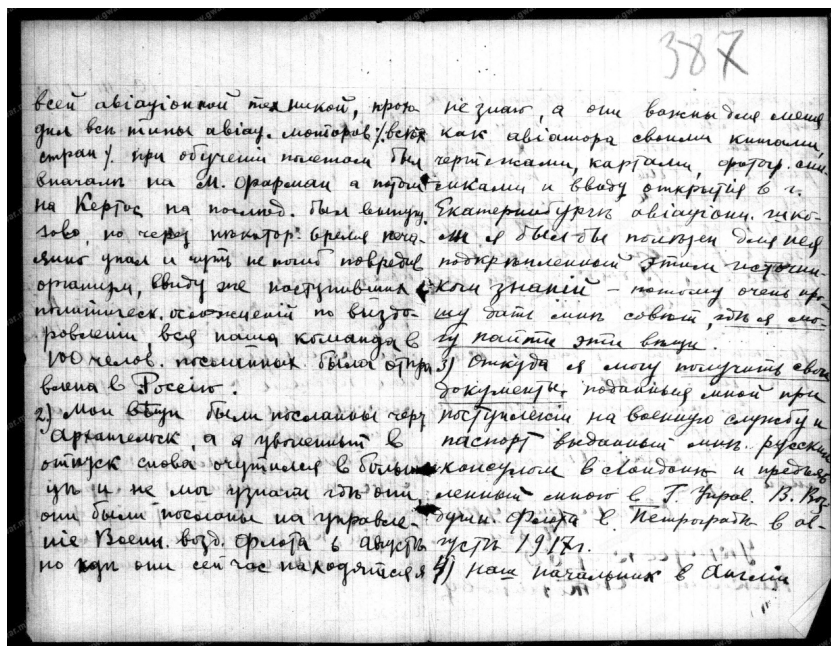 387
всей авіаціонной техникой, прохо
дил всѣ типы авіац. моторов /. всѣх
стран /. при обученіи полетам был
вначалѣ на М. Фарман а потом
на Кертис на послѣд. был выпу
но через нѣкотор. время
упал и чуть не погиб повредив
организм, ввиду же наступивших
политическ. осложненій по вы
здоровленіи, вся наша команда в
100 челов. посланных была отпра
влена в Россію.
2) Мои вещи были посланы чере
Архангельск, а я уволенный в
отпуск снова очутился в больни
цѣ и не мог узнать гдѣ они,
они были посланы на управле-
ніе Воен. возд. Флота в августѣ
но гдѣ они сейчас находятся я
не знаю, а они важны для меня
как авіатора своими книгами,
чертежами, картами, фотогр. сни-
мками и ввиду открытія в г.
Екатеринбургѣ авіаціонн. шко-
лы я был бы полезен для нея
подкрѣпленный этим источни-
ком знаній – потому очень про-
шу дать мнѣ совѣт, гдѣ я мо-
гу найти эти вещи.
3) Откуда я могу получить свои
документы поданныя мной при
поступленіи на военную службу и
паспорт выданный мнѣ русским
консулом в Лондонѣ и предъяв
ленный мною в Г. Управ. В. Воз
душн. Флота в Петроградѣ в ав-
густѣ 1917 г.
4) наш начальник в Англіи